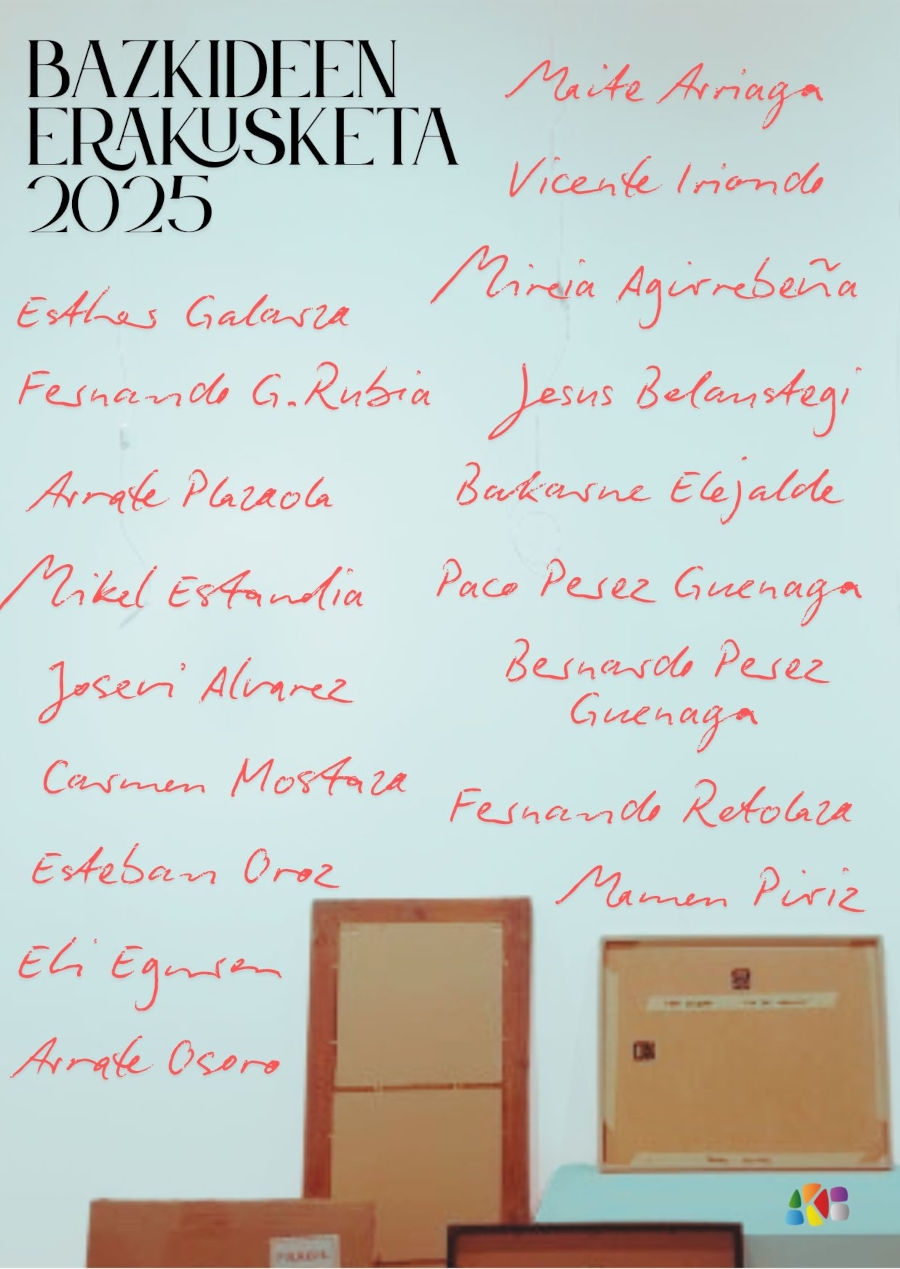 BAZKIDEEN
ERAKUSKETA
2025
Esther Galarza
Fernando G. Rubia
Arrate Plazaola
Mikel Estandia
Josevi Alvarez
Carmen Mostaza
Esteban Oroz
Eli Eguren
Arrate Osoro
Maite Arriaga
Vicente Iriondo
Mireia Agirrebeña
Jesus Belaustegi
Bakarne Elejalde
Paco Perez Guenaga
Bernardo Perez
Guenaga
Fernando Retolaza
Mamen Piriz